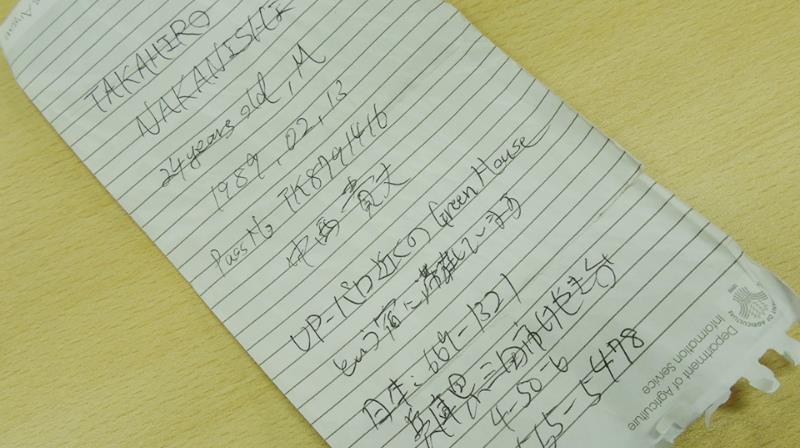 TAKAHIRO
NAKANISHI
24 years old, M
1989, 02, 13
Pass No
中西
近くの Green House
という宿に滞在している
日本: 669-1321
兵庫県三田市けやき台
4-50-6
Department of Agriculture
Information Service